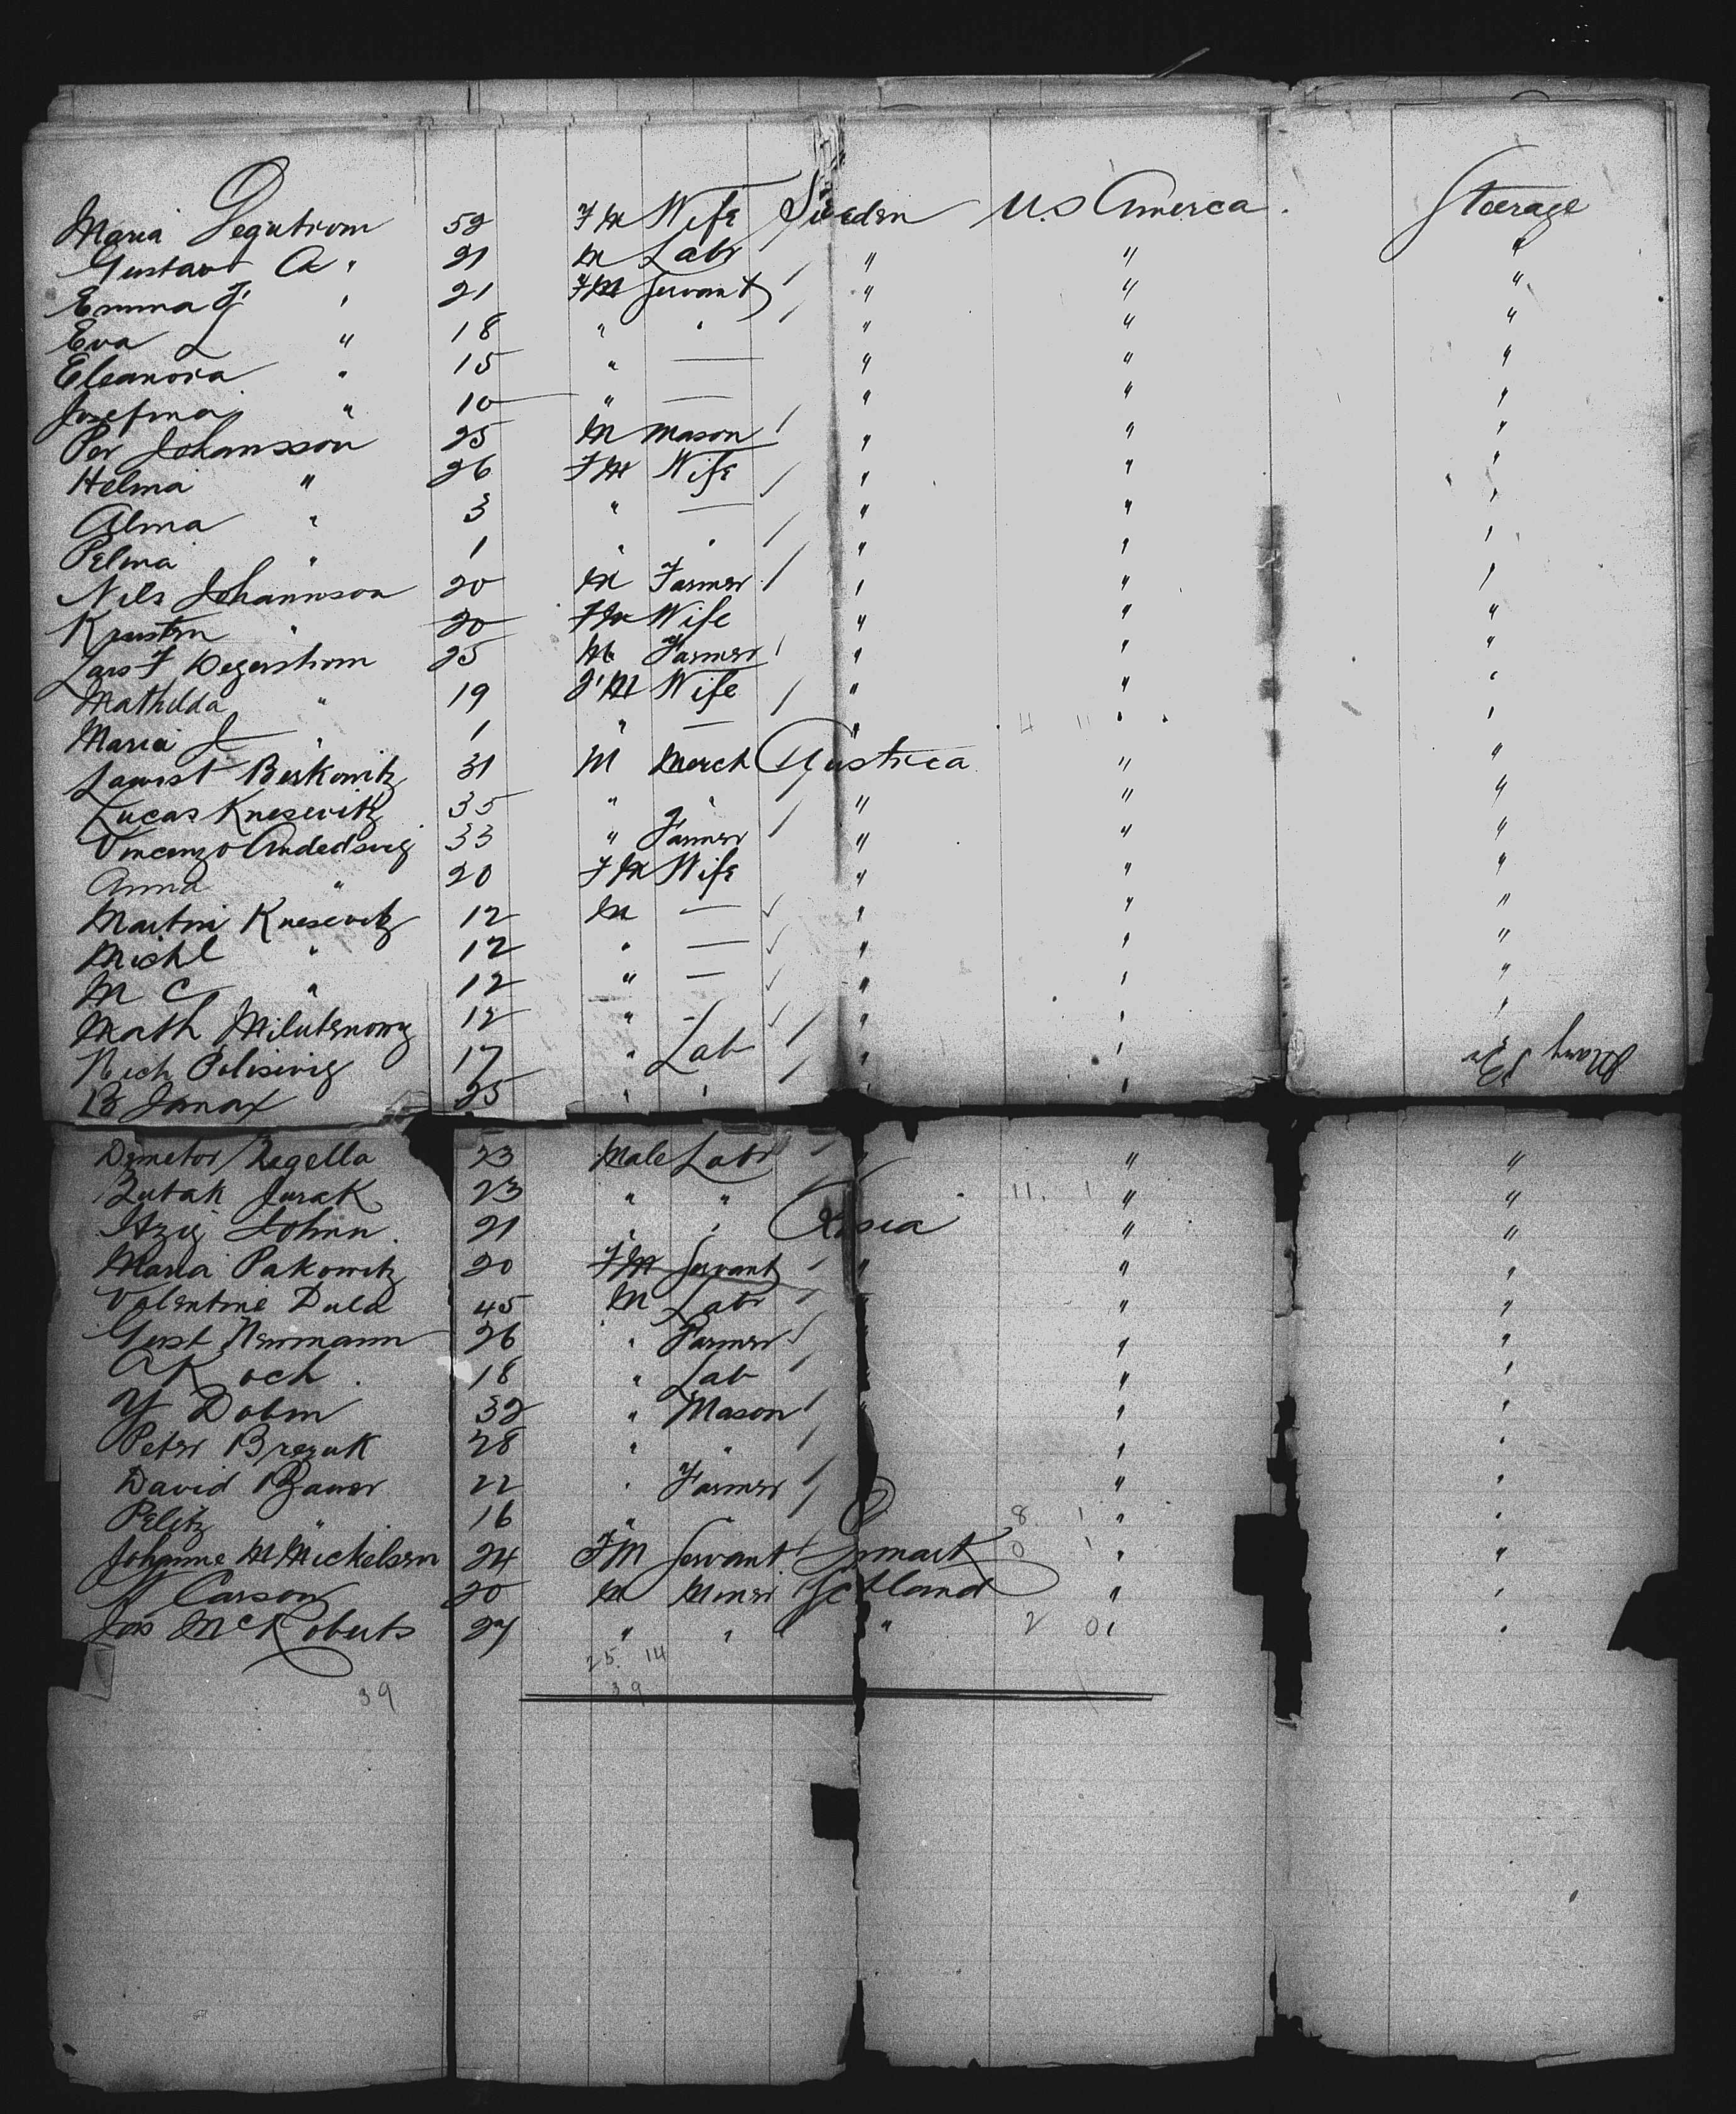 Maria Segustrom 52 FM Wife Sweden U.S America. Steerage
Gustav A " 21 M Labr " " "
Emma F " 21 FM Servant " " "
Eva " 18 " " " " "
Eleanora " 15 " — " " "
Josefina " 10 " — " " "
Per Johansson 25 M Mason " " "
Helma " 26 FM Wife " " "
Alma " 3 " — " " "
Pelma " 1 " " " " "
Nils Johannson 20 M Farmer " " "
Kerstin " 20 FM Wife " " "
Lars F Degerstrom 25 M Farmer " " "
Mathilda " 19 FM Wife " " "
Maria J " 1 " — " 4 11 " "
Berkowitz 31 M Merch Austria " "
Lucas Knesevitz 35 " " " " "
Vincenzo 33 " Farmer " " "
Anna " 20 FM Wife " " "
Martin Knesevitz 12 M — " " "
Michl " 12 " — " " "
M C " 12 " — " " "
Math 12 " — " " "
17 " Lab " " "
B 25 " " " "
Demetor 23 Male Labr " " "
Jurak 23 " " 11. 1 " "
John 21 " " " "
Maria Pakowitz 20 FM Servant " " "
Valentine Dula 45 M Labr " "
Gust Newmann 26 " Farmer " "
A Koch. 18 " Lab " "
Y Dobin 32 " Mason " "
Peter Brezuk 28 " " " "
David Bauer 22 " Farmer " "
" 16 " 8 1 " "
Johanne M Mickelsen 24 FM Servant 0 1 " "
Carson 20 M Miner Scotland " "
Jas McRoberts 27 " " " 2 0 " "
25. 14
39 39